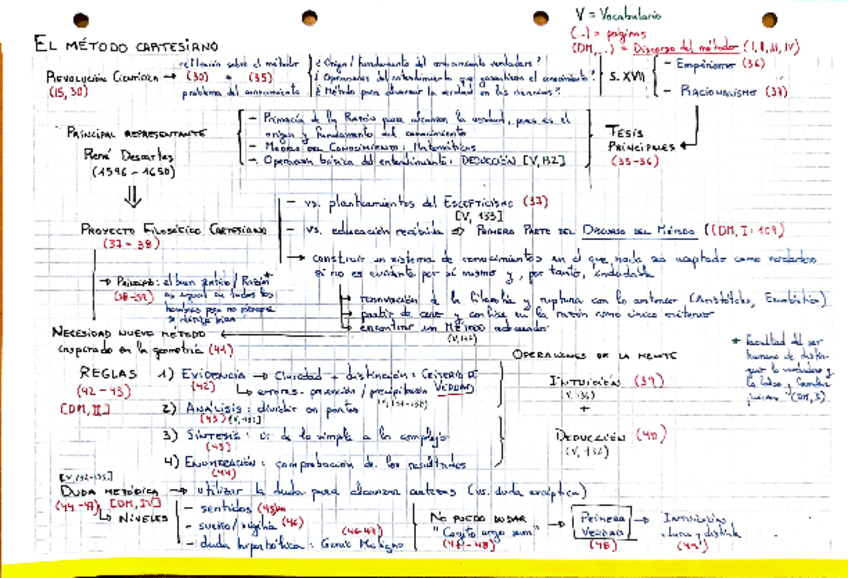 V = Vocabulario
(..) = páginas
(DM, ..) = Discurso del método (I, II, III, IV)
EL MÉTODO CARTESIANO
REVOLUCIÓN CIENTÍFICA → reflexión sobre el método (30) + (35) problema del conocimiento
(15, 30)
¿Origen/fundamento del conocimiento verdadero?
¿Operaciones del entendimiento que garantizan el conocimiento?
¿Método para alcanzar la verdad en las ciencias?
S. XVII
- Empirismo (36)
- RACIONALISMO (37)
PRINCIPAL REPRESENTANTE
René Descartes
(1596 - 1650)
- Primacía de la Razón para alcanzar la verdad, pues es el
origen y fundamento del conocimiento
- MODELO DEL CONOCIMIENTO: Matemáticas
- Operación básica del entendimiento: DEDUCCIÓN [V, 132]
TESIS
PRINCIPALES
(35-36)
PROYECTO FILOSÓFICO CARTESIANO
(37 - 38)
- vs. planteamientos del ESCEPTICISMO (37)
[V, 133]
- vs. educación recibida ⇒ PRIMERA PARTE DEL DISCURSO DEL MÉTODO ((DM, I: 109)
→ construir un sistema de conocimientos en el que nada sea aceptado como verdadero
si no es evidente por sí mismo y, por tanto, indudable
↳ renovación de la filosofía y ruptura con lo anterior (Aristóteles, Escolástica)
↳ partir de cero y confiar en la razón como único criterio
↳ encontrar un MÉTODO adecuado
→ Principio: el buen sentido / Razón *
(38-39) es igual en todos los
hombres pero no siempre
se dirige bien
NECESIDAD NUEVO MÉTODO
inspirado en la geometría (41)
REGLAS
(42 - 43)
[DM, II]
1) EVIDENCIA → Claridad + distinción: CRITERIO DE VERDAD
(42)
↳ errores: prevención / precipitación
2) ANÁLISIS: dividir en partes
(43)
3) SÍNTESIS: ir de lo simple a lo complejo
(43)
4) ENUMERACIÓN: comprobación de los resultados
(44)
OPERACIONES DE LA MENTE
INTUICIÓN (39)
+
DEDUCCIÓN (40)
(V, 132)
* facultad del ser
humano de distin-
guir lo verdadero y
lo falso
DUDA METÓDICA → utilizar la duda para alcanzar certezas (vs. duda escéptica)
(44 - 47) [DM, IV]
↳ NIVELES
- sentidos (45)
- sueño / vigilia (46)
- duda hiperbólica: Genio Maligno (46-47)
NO PUEDO DUDAR
"Cogito ergo sum"
(47 - 48)
→ PRIMERA
VERDAD
(48)
→ Intuición
clara y distinta
(49)